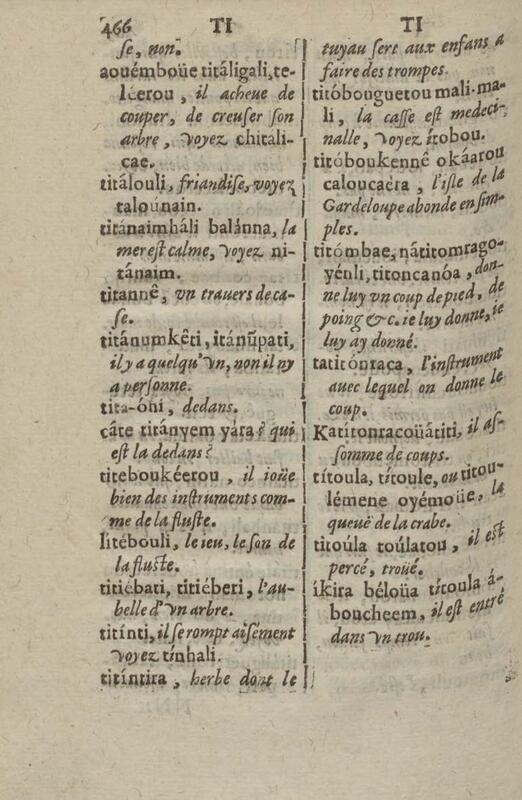 466 TI TI
se, non.
aouémboüe titáligali, te-
léerou, il acheue de
couper, de creuser son
arbre, voyez chitali-
cae.
titálouli, friandise, voyez
taloúnain.
titánaimháli balánna, la
mer est calme, voyez ni-
tánaim.
titannê, vn trauers de ca-
se.
titánumkêti, itánũpati,
il y a quelqu'vn, non il ny
a personne.
tita-óni, dedans.
câte titányem yára? qui
est la dedans?
titeboukéerou, il ioüe
bien des instruments com-
me de la fluste.
litébouli, le ieu, le son de
la fluste.
titiébati, titiéberi, l'au-
belle d'vn arbre.
titínti, il se rompt aisément
voyez tínhali.
titíntira, herbe dont le
tuyau sert aux enfans a
faire des trompes.
titóbouguetou mali-ma-
li, la casse est medeci-
nalle, voyez ítobou.
titóboukennê okáarou
caloucaèra, l'isle de la
Gardeloupe abonde en sim-
ples.
titómbae, nátitomrago-
yénli, titoncanóa, don-
ne luy vn coup de pied, de
poing &c. ie luy donne, ie
luy ay donné.
tatitónraça, l'instrument
auec lequel on donne le
coup.
Katítonracoüátiti, il as-
somme de coups.
títoula, títoule, ou titou-
lémene oyémoüe, la
queuë de la crabe.
titoúla toúlatou, il est
percé, troüé.
íkira béloüa títoula á-
boucheem, il est entré
dans vn trou.